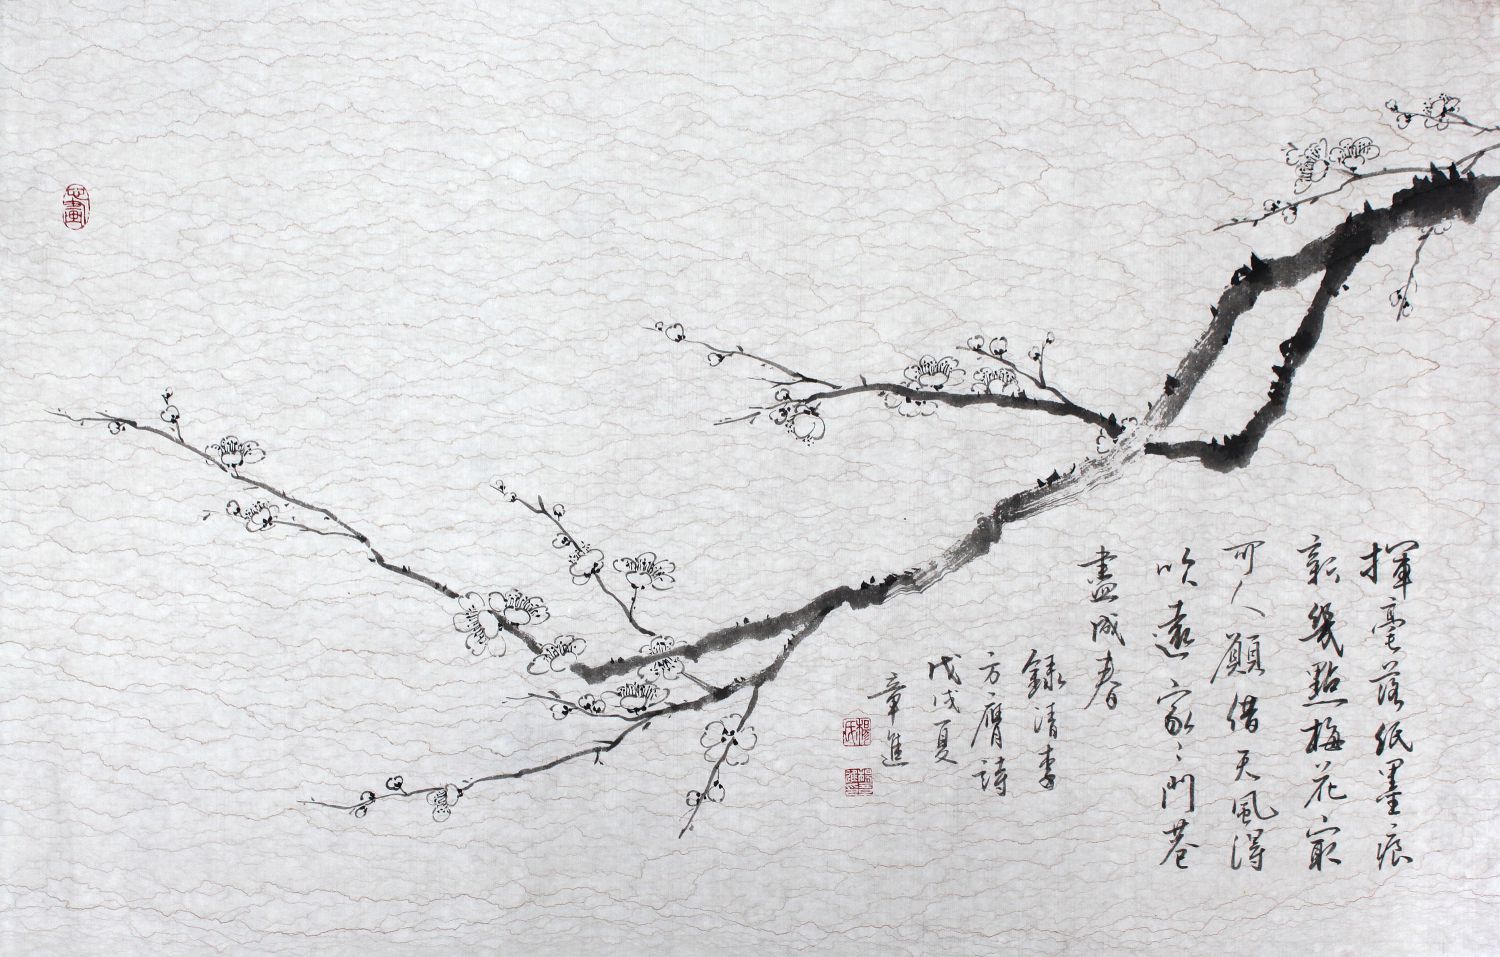 揮毫落紙墨痕
新幾點梅花最
可人願借天風得
吹遠家〻門巷
盡成春
錄清李
方膺詩
戊戌夏
章進